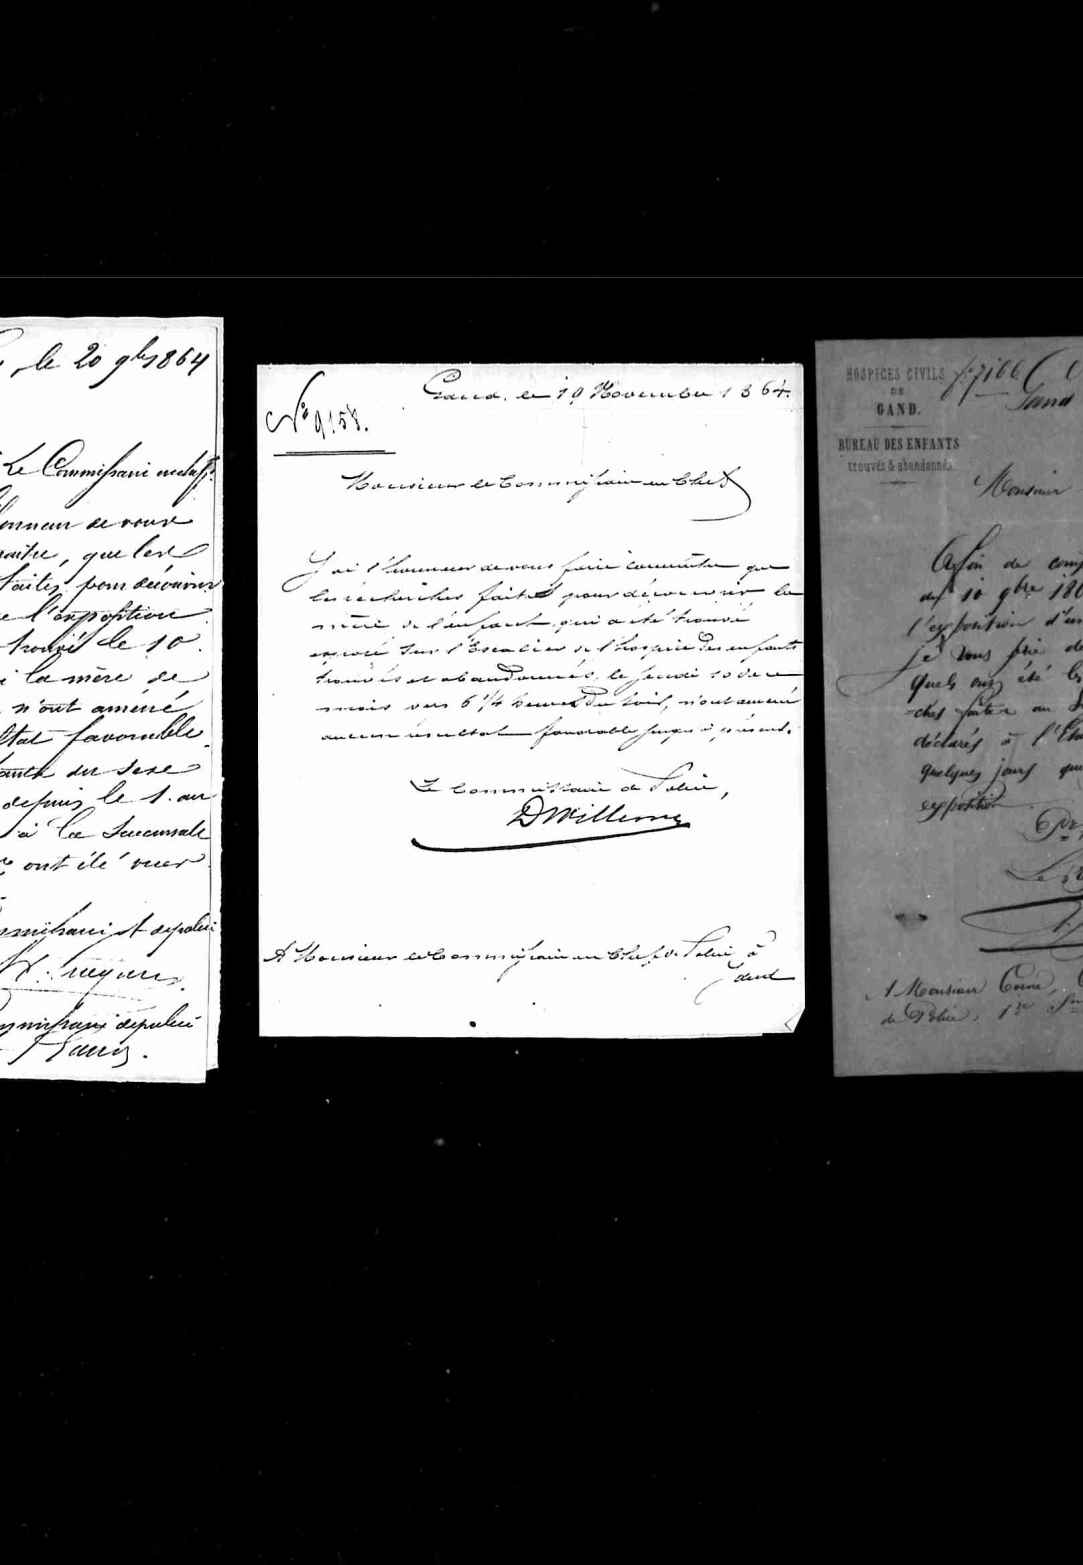 , le 20 9bre 1864
Le Commissaire en chef.
honneur de vous
naître, que les
faites pour découvrir
de l'exposition
trouvé le 10.
la mère de
n'ont amené
favorable
du sexe
depuis le 1. au
à la Succursale
ont été
Commissaire de police
Commissaire de police
Gand, le 19 Novembre 1864.
N° 9158.
Monsieur le Commissaire en Chef
J'ai l'honneur de vous faire connaître que
les récherches faites pour découvrir la
mère de l'enfant, qui a été trouvé
exposé sur l'Escalier de l'hospice des enfants
trouvés et abandonnés, le jeudi 10 de ce
mois vers 6 1/4 heures du soir, n'ont amené
aucun résultat favorable jusqu'à présent.
Le Commissaire de Police,
DWillems
A Monsieur le Commissaire en Chef de Police à
Gand
HOSPICES CIVILS
DE
GAND.
BUREAU DES ENFANTS
trouvés & abandonnés.
N° 7166
Gand
Monsieur
Afin de comp
du 10 9bre 186
l'exposition d'un
je vous prie de
quels ont été les
-ches faites au
déclarés à l'Eta
quelques jours que
exposition
Le
A Monsieur
de Police, 1re